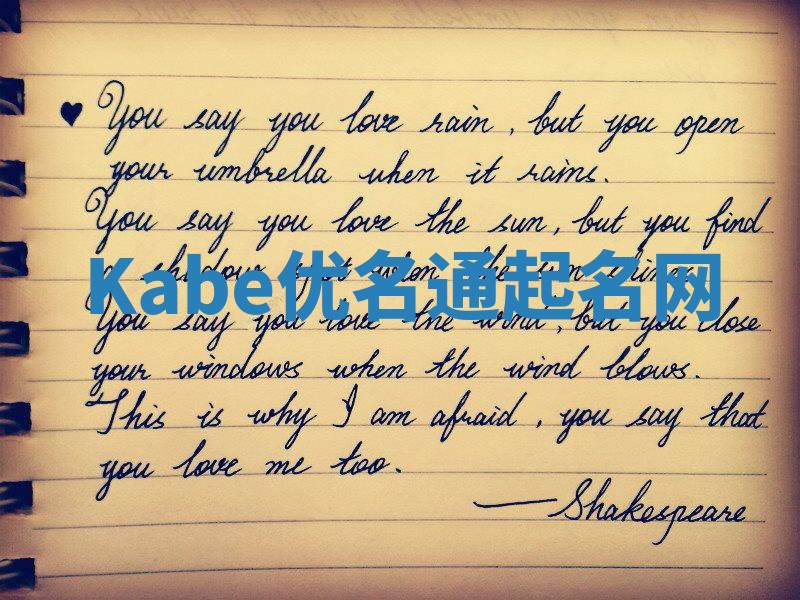 ♥ You say you love rain, but you open
your umbrella when it rains.
You say you love the sun, but you find
a shadow spot when the sun shines.
Kabe优名通起名网
You say you love the wind, but you close
your windows when the wind blows.
This is why I am afraid, you say that
you love me too.
—Shakespeare